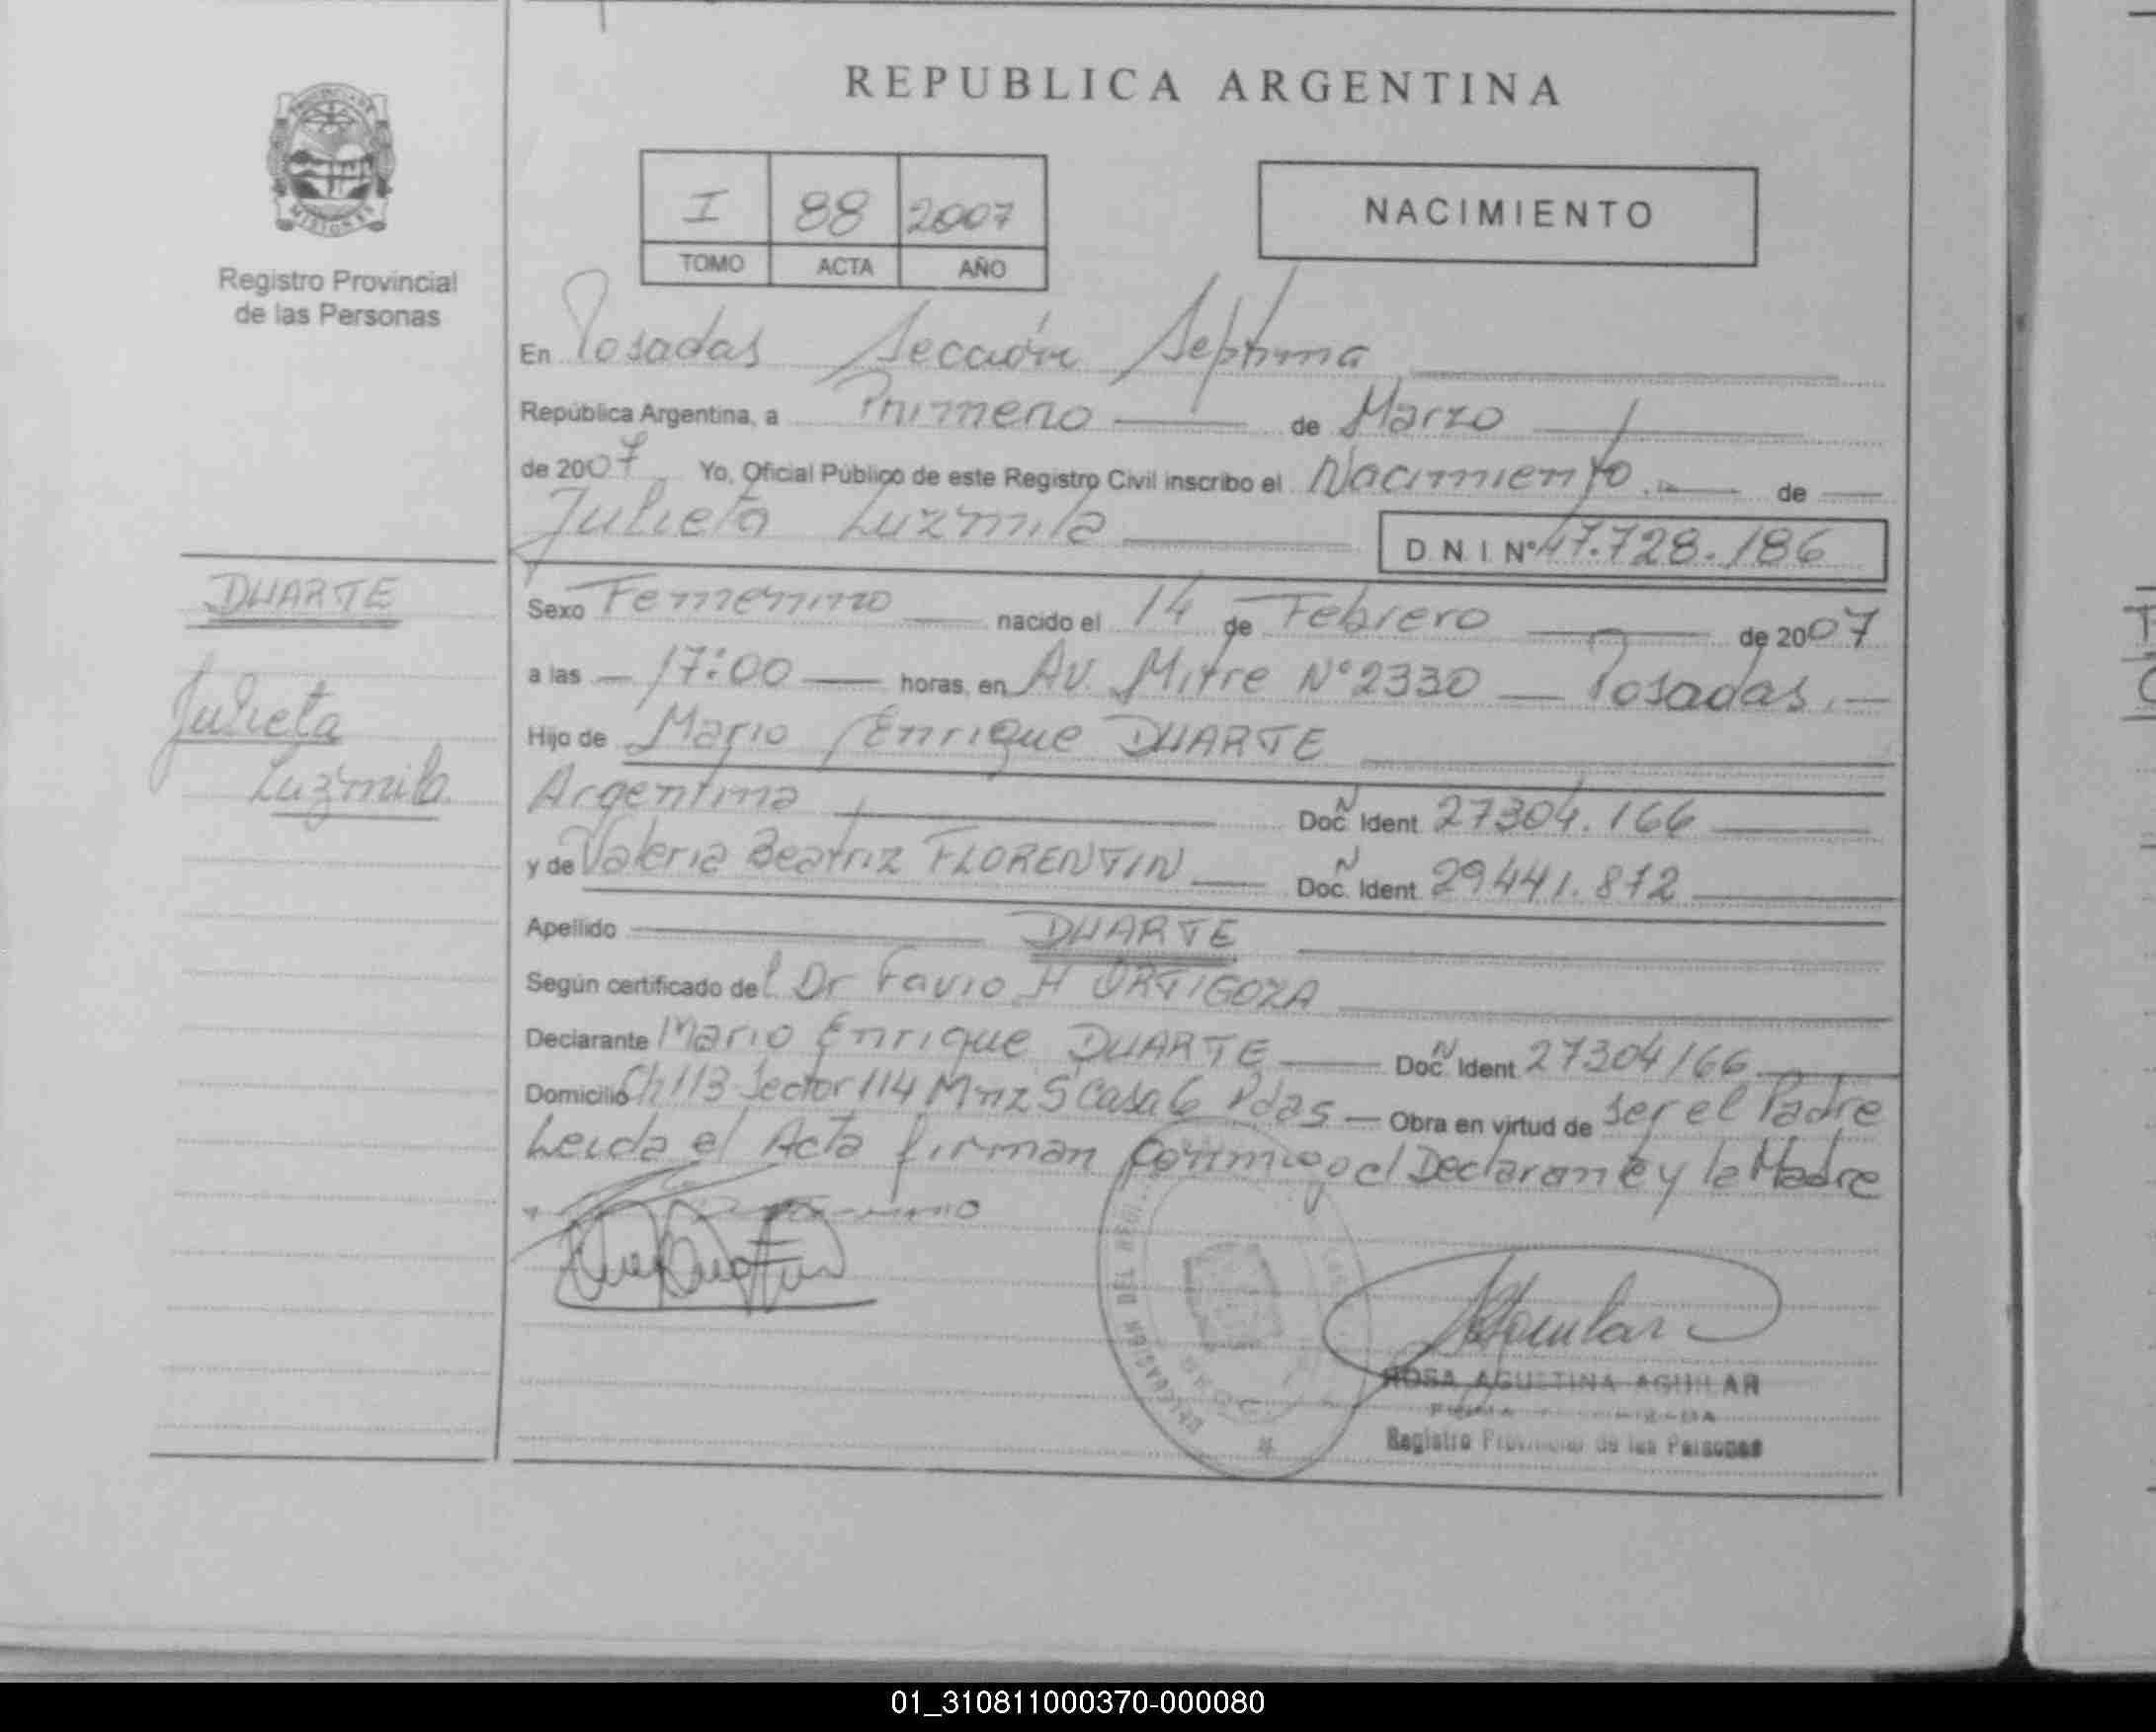 REPUBLICA ARGENTINA
PROVINCIA DE
MISIONES
Registro Provincial
de las Personas
I 88 2007
TOMO ACTA AÑO
NACIMIENTO
En Posadas Sección Septima
República Argentina, a Primero de Marzo
de 2007 Yo, Oficial Público de este Registro Civil inscribo el Nacimiento de
Julieta Luzmila D.N.I Nº 47.728.186
DUARTE
Julieta
Luzmila
Sexo Femenino nacido el 14 de Febrero de 2007
a las 17:00 horas, en Av. Mitre Nº 2330 Posadas.
Hijo de Mario Enrique DUARTE
Argentina Doc. Ident 27304.166
y de Valeria Beatriz FLORENTIN Doc. Ident. 29441.872
Apellido DUARTE
Según certificado del Dr Favio H ORTIGOZA
Declarante Mario Enrique DUARTE Doc. Ident. 27304166
Domicilio Ch 113 Sector 114 Mnz 5 Casa 6 Pdas Obra en virtud de ser el Padre
Leida el Acta firman conmigo el Declarante y la Madre
ROSA AGUSTINA AGUILAR
Registro Provincial de las Personas
01_310811000370-000080